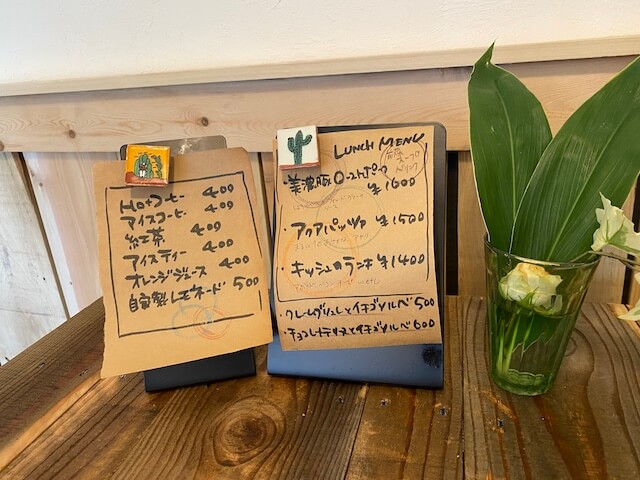 Hotコーヒー 400
アイスコーヒー 400
紅茶 400
アイスティー 400
オレンジジュース 400
自家製レモネード 500
LUNCH MENU
・美濃豚ローストポーク ¥1600
・アクアパッツァ ¥1500
・キッシュのランチ ¥1400
・クレームブリュレとイチゴソルベ 500
・チョコレートテリーヌとイチゴソルベ 600